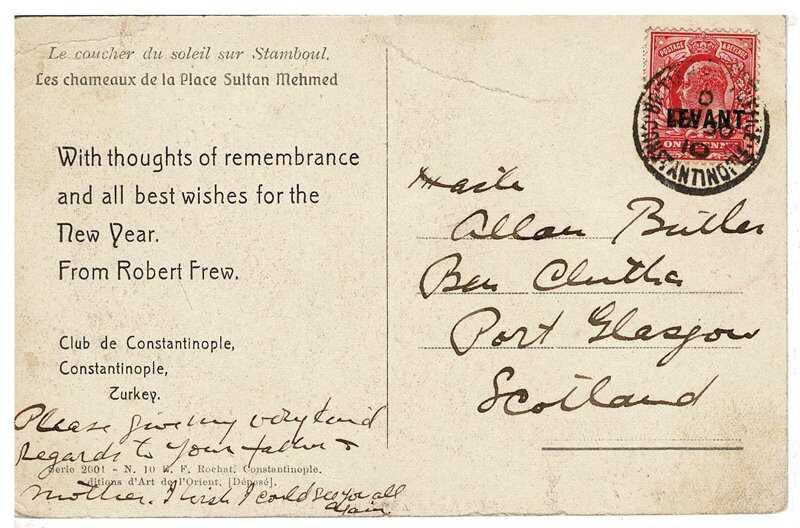 Le coucher du soleil sur Stamboul.
Les chameaux de la Place Sultan Mehmed
With thoughts of remembrance
and all best wishes for the
New Year.
From Robert Frew.
Club de Constantinople,
Constantinople,
Turkey.
Please give my very kind
regards to your father +
Serie 2001 - N. 10 F. Rochat, Constantinople.
ditions d'Art de l'Orient. [Déposé].
mother. I wish I could see you all
again.
POSTAGE & REVENUE
LEVANT
ONE PENNY
Allan Butler
Ben Clutha
Port Glasgow
Scotland